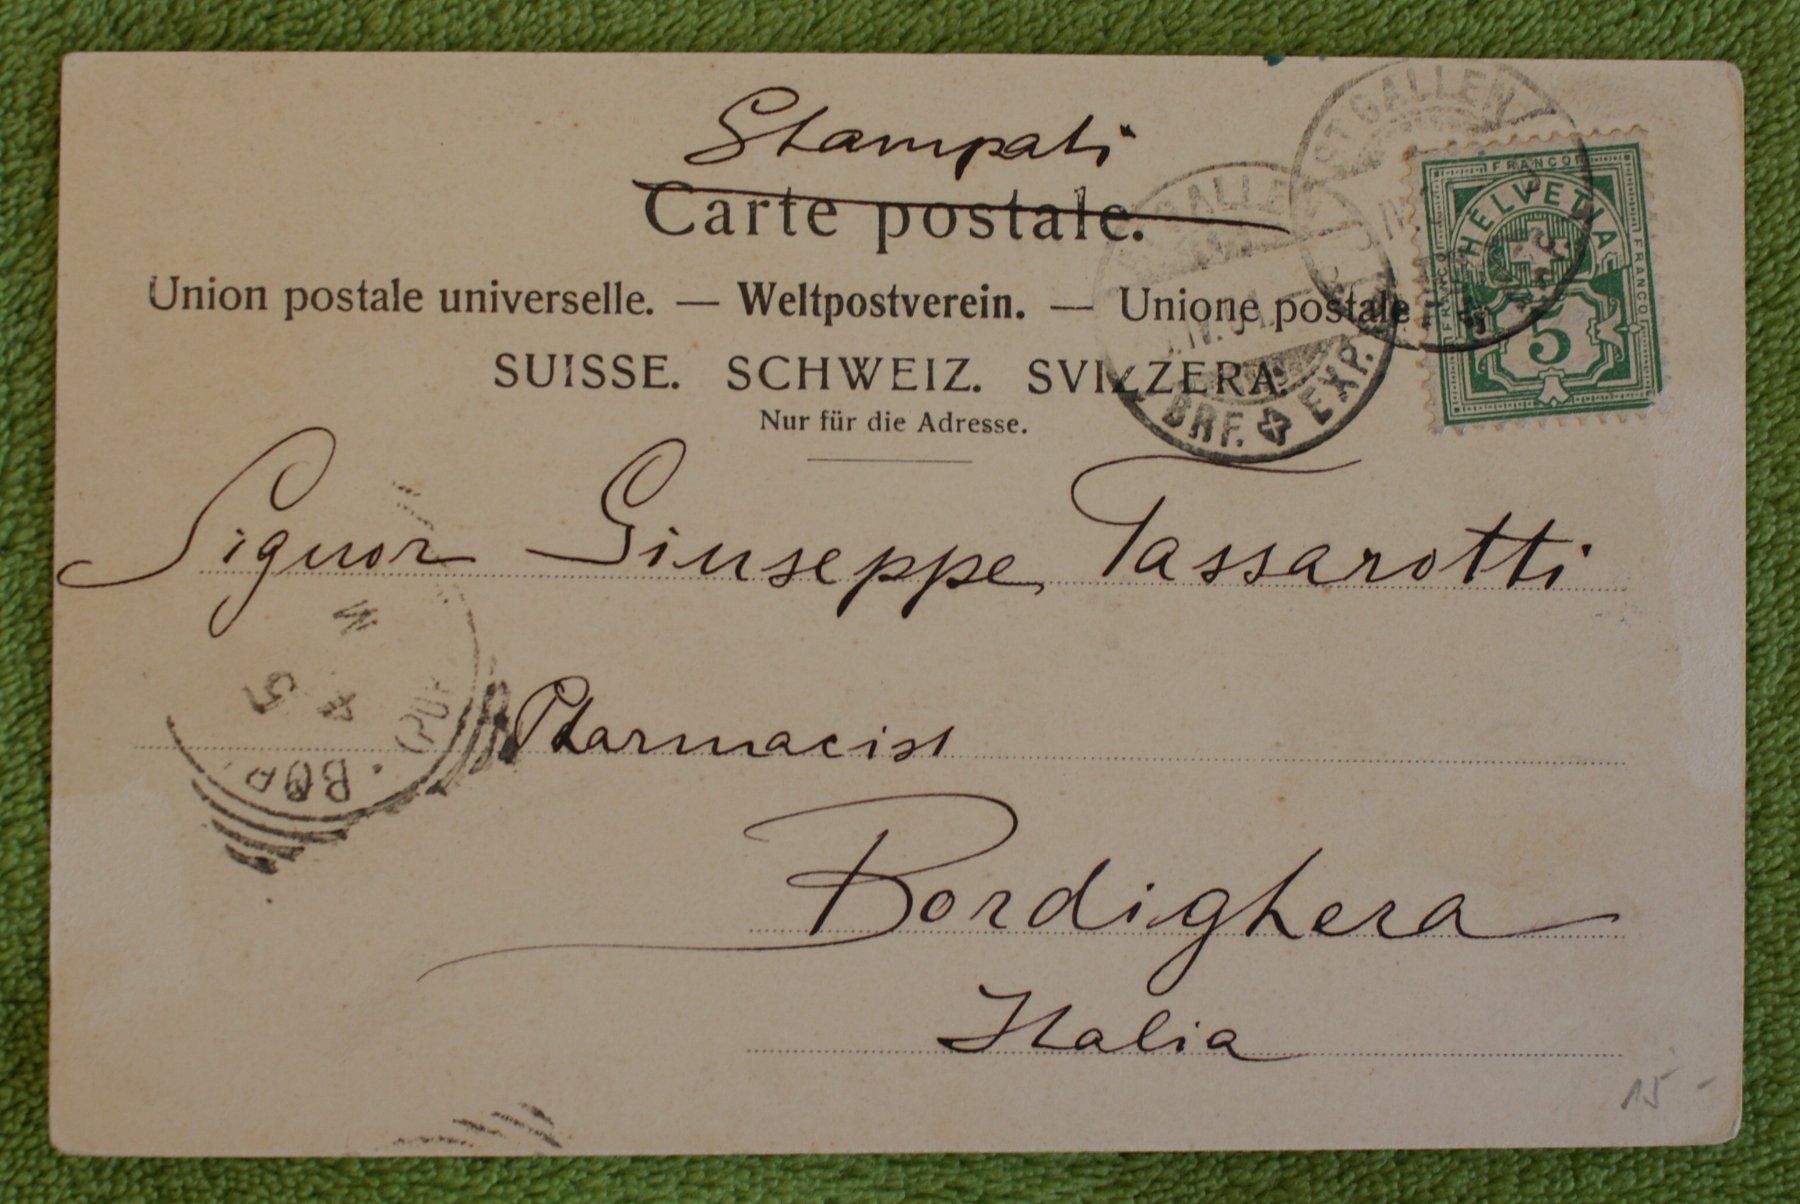 Stampati
Carte postale.
Union postale universelle. — Weltpostverein. — Unione postale
SUISSE. SCHWEIZ. SVIZZERA.
Nur für die Adresse.
ST. GALLEN
GALLEN
BRF. EXP.
FRANCO
HELVETIA
FRANCO
FRANCO
5
Signor Giuseppe Tassarotti
Pharmacist
Bordighera
Italia
15 -